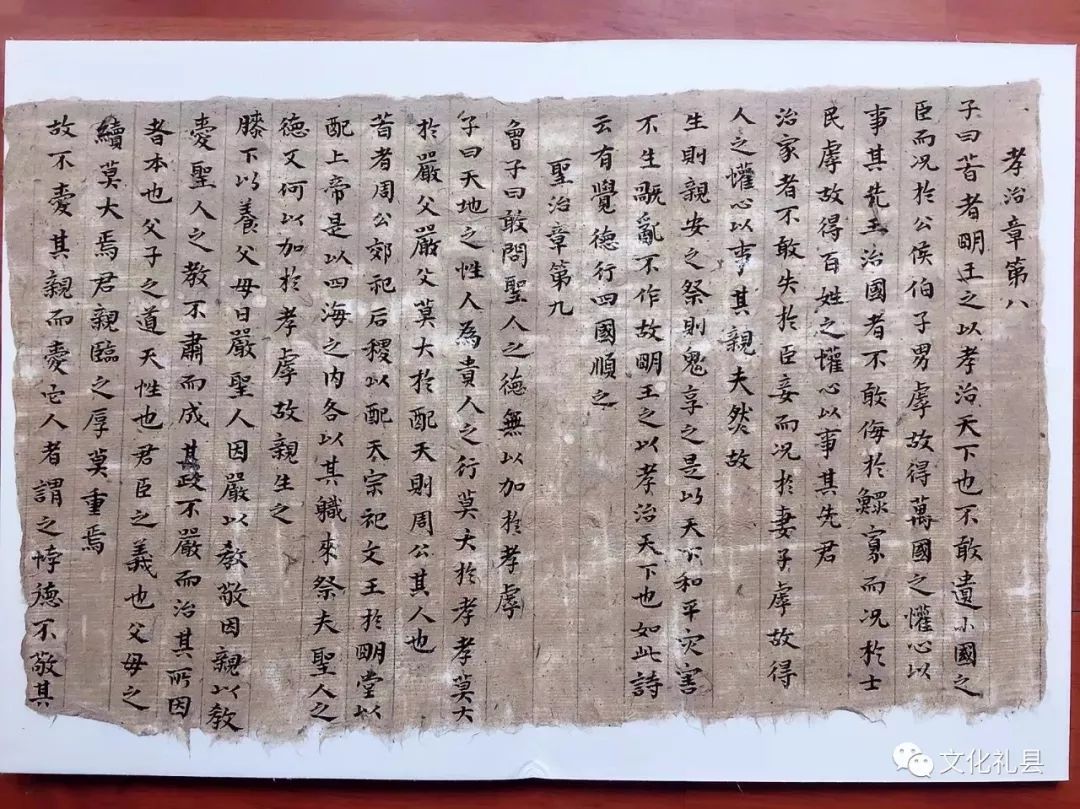 孝治章第八
子曰昔者明王之以孝治天下也不敢遺小國之
臣而况於公侯伯子男虖故得萬國之懽心以
事其先王治國者不敢侮於鰥寡而况於士
民虖故得百姓之懽心以事其先君
治家者不敢失於臣妾而况於妻子虖故得
人之懽心以事其親夫然故
生則親安之祭則鬼享之是以天下和平灾害
不生禍亂不作故明王之以孝治天下也如此詩
云有覺德行四國順之
聖治章第九
曾子曰敢問聖人之德無以加於孝虖
子曰天地之性人為貴人之行莫大於孝孝莫大
於嚴父嚴父莫大於配天則周公其人也
昔者周公郊祀后稷以配天宗祀文王於明堂以
配上帝是以四海之内各以其職來祭夫聖人之
德又何以加於孝虖故親生之
膝下以養父母日嚴聖人因嚴以教敬因親以教
愛聖人之教不肅而成其政不嚴而治其所因
者本也父子之道天性也君臣之義也父母之
續莫大焉君親臨之厚莫重焉
故不愛其親而愛它人者謂之悖德不敬其
文化礼县